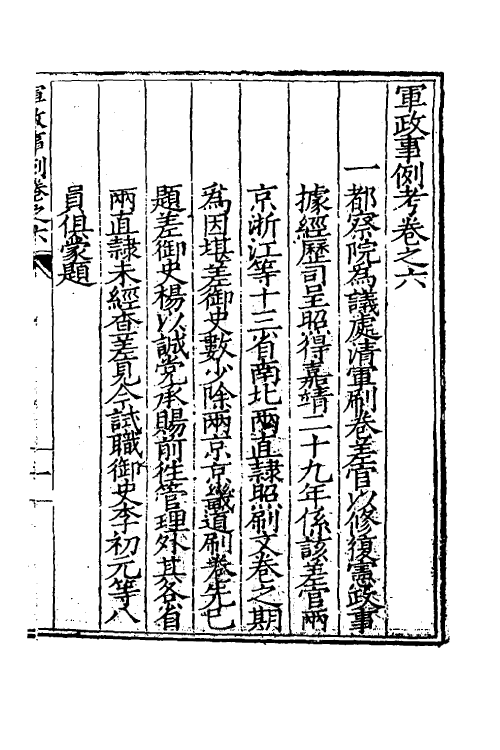 軍政事例考卷之六
一都察院爲議處清軍刷卷差官以修復憲政事
據經歷司呈照得嘉靖二十九年係該差官兩
京浙江等十三省南北兩直隸照刷文卷之期
爲因堪差御史數少除兩京京畿道刷卷先已
題差御史楊以誠党承賜前徃管理外其各省
兩直隸未經查差見今試職御史李初元等八
員俱蒙題
軍政事例卷之六